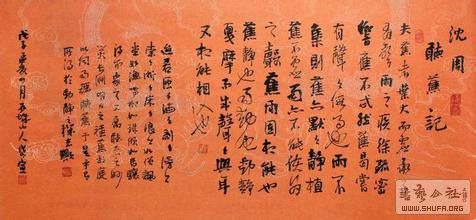 沈周
聽蕉記
夫蕉者葉大而虛承
雨有聲雨之疾徐疏密
響應不忒然蕉曷嘗
有聲聲假雨也雨不
集則蕉亦默默靜植
蕉不虛雨亦不能使為
之聲蕉雨固相能也
蕉靜也雨動也動靜
戛摩而成聲聲與耳
又能相入也
迨若匝匝插插剝剝滂滂
索索淅淅床床浪浪如僧諷
堂如漁鳴榔如珠傾如馬驤
得而象之又屬聽者之妙也
長洲胡日之種蕉於庭
以伺雨號聽蕉於是乎有
所得於動靜之機者歟
戊子月山人
書藝公社
WWW.SHUFA.ORG